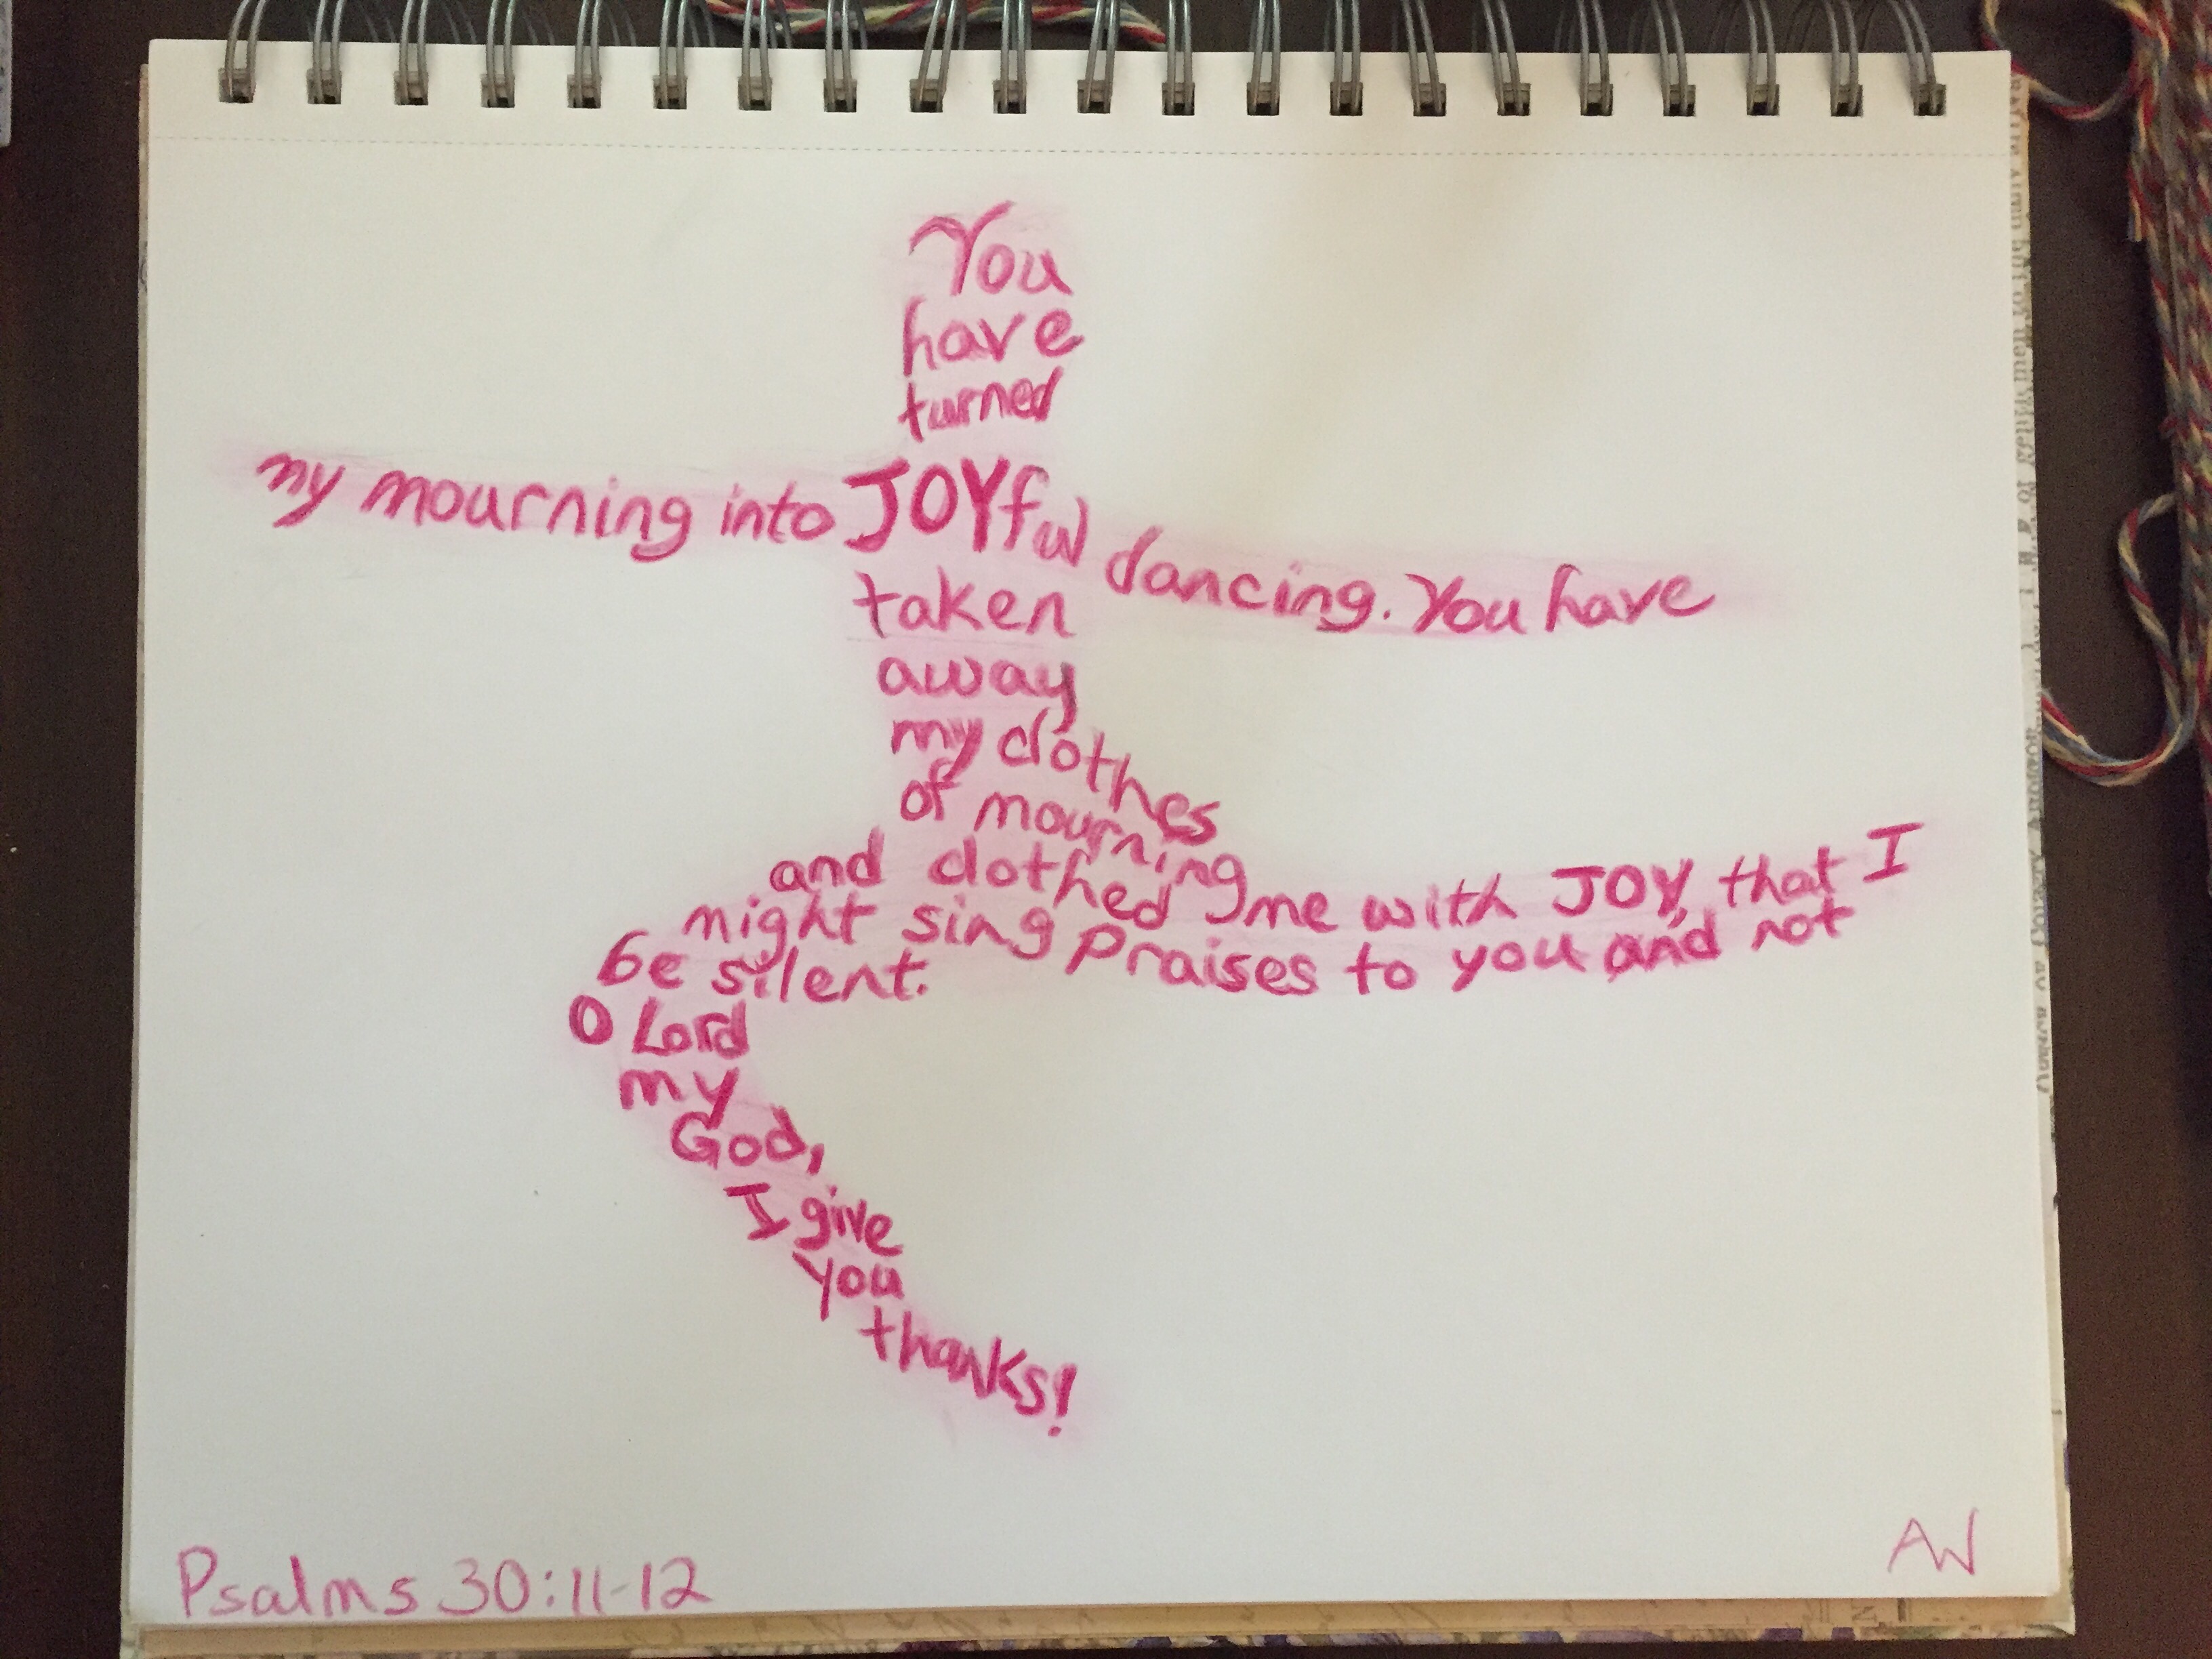 You
have
turned
my mourning into JOYful dancing. You have
taken
away
my clothes
of mourning
and clothed me with JOY, that I
might sing praises to you and not
be silent.
O Lord
my
God,
I give
you
thanks!
Psalms 30:11-12
AW